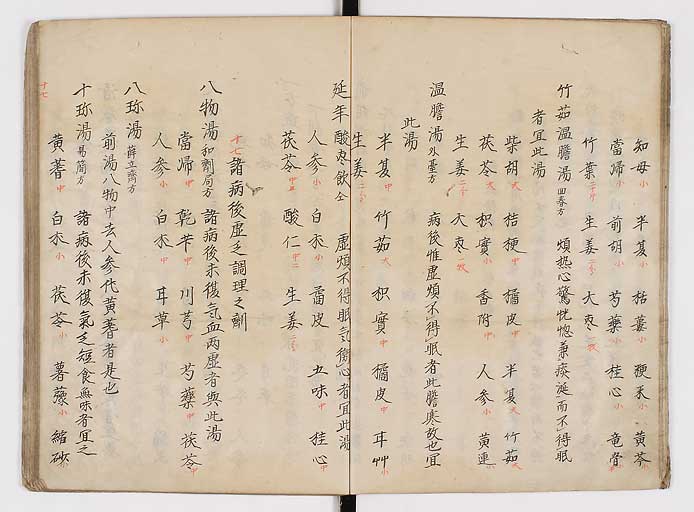 知母小 半夏小 括蔞小 粳米小 黄芩小
當帰小 前胡小 芍藥小 桂心小 竜骨
竹葉 生姜 大枣
竹茹温膽湯回春方 煩熱心驚恍惚兼痰涎而不得眠
者宜此湯
柴胡大 桔梗中 橘皮中 半夏大 竹茹大
茯苓大 枳實小 香附中 人参小 黄連小
生姜 大枣
温膽湯外臺方 病後惟虚煩不得眠者此膽寒故也宜
此湯
半夏中 竹茹大 枳實中 橘皮中 耳艸小
生姜
延年酸枣飲仝 虚煩不得眠気衝心者宜此湯
人参小 白朮小 橘皮 五味中 桂心中
茯苓 酸仁 生姜
十七 諸病後虚乏調理之劑
八物湯和劑局方 諸病後未復気血両虚者與此湯
當帰中 乾芐中 川芎中 芍藥中 茯苓中
人参小 白朮中 耳草小
八珎湯薛立齋方
前湯八物中去人参代黄蓍者是也
十珎湯易簡方 諸病後未復氣乏短食無味者宜之
黄蓍中 白朮小 茯苓小 薯蕷小 縮砂
十七